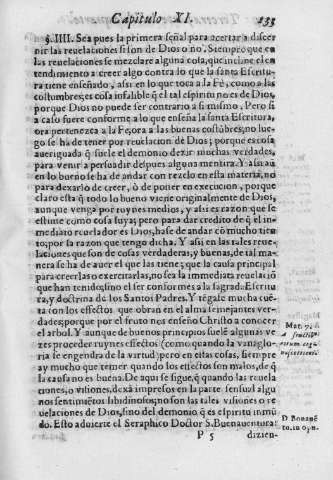 Capitulo XI.
133
§. IIII. Sea pues la primera señal para acertar a discer
nir las reuelaciones si son de Dios o no. Siempre que en
las reuelaciones se mezclare alguna cosa, que incline el en
tendimiento a creer algo contra lo que la santa Escritu
ra tiene enseñado, assi en lo que toca a la Fè, como a las
costumbres; es cosa infalible q̃ el tal espiritu no es de Dios,
porque Dios no puede ser contrario a si mismo. Pero si
a caso fuere conforme a lo que enseña la santa Escritura,
ora pertenezca a la Fè, ora a las buenas costũbres; no lue-
go se ha de tener por reuelacion de Dios; porque es cosa
aueriguada q̃ suele el demonio dezir muchas verdades,
para venir a persuadir despues alguna mentira. Y assi aũ
en lo bueno se ha de andar con rezelo en esta materia, no
para dexarlo de creer, ò de poner en execucion, porque
claro està q̃ todo lo bueno viene originalmente de Dios,
aunque venga por ruynes medios, y assi es razon que se
estime como cosa suya; pero para dar credito de q̃ el in-
mediato reuelador es Dios, hase de andar cõ mucho tien
to; por la razon que tengo dicha. Y assi en las tales reue-
laciones que son de cosas verdaderas, y buenas, de tal ma-
nera se ha de auer el que las tiene; que la causa principal
para creerlas o exercitarlas, no sea la immediata reuelaciõ
que han tenido, sino el ser conformes a la sagrada Escritu
ra, y doctrina de los Santos Padres. Y tẽgase mucha cuẽ
ta con los effectos que obran en el alma semejantes ver-
dades; porque por el fruto nos enseño Christo a conocer
el arbol. Y aunque de buenos principios suele algunas ve
zes proceder ruynes effectos (como quando la vanaglo-
ria se engendra de la virtud) pero en estas cosas, siempre
ay mucho que temer quando los effectos son malos, de q̃
la causa no es buena. De aqui se sigue, q̃ quando las reuela
ciones, o visiones, dexã impressos en la parte sensual algu
nos sentimiẽtos libidinosos; no son las tales visiones o re
uelaciones de Dios, sino del demonio q̃ es espiritu inmũ
do. Esto aduierte el Seraphico Doctor S. Buenauentura:
P 5
dizien-
Mat. 7.
A fructibus
eorum
D. Bonauẽ
to. in opu.